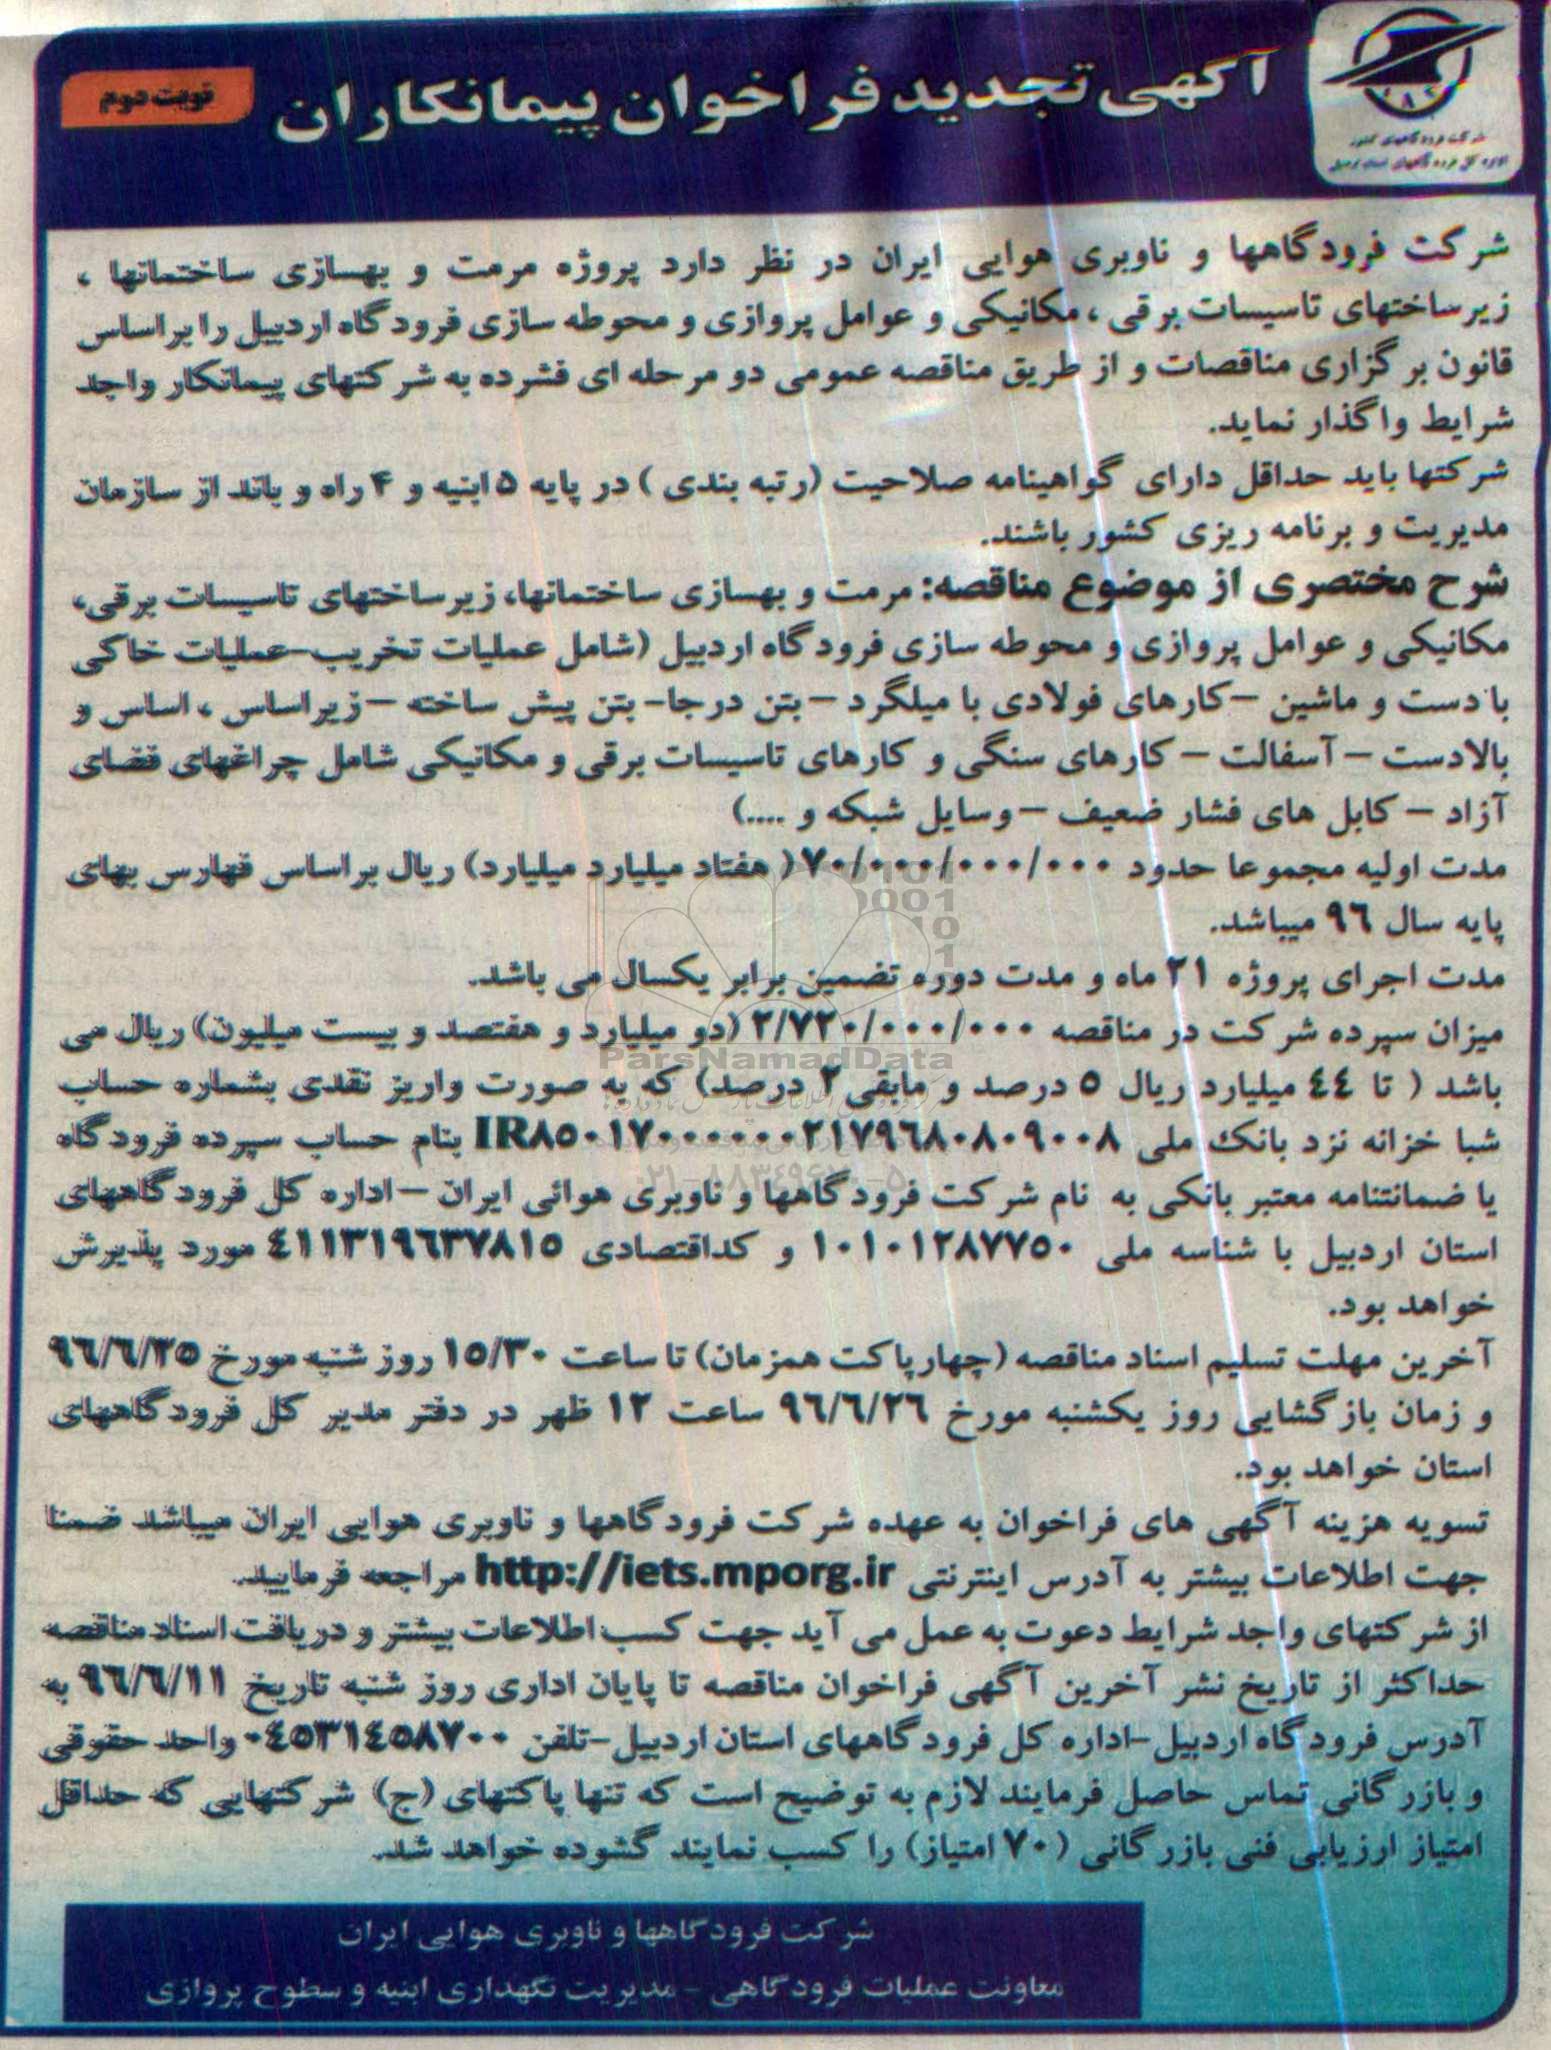 آگهی تجدید فراخوان پیمانکاران
نوبت دوم
شرکت فرودگاههای کشور
اداره کل فرودگاههای استان اردبیل
شرکت فرودگاهها و ناوبری هوایی ایران در نظر دارد پروژه مرمت و بهسازی ساختمانها ،
زیرساختهای تاسیسات برقی ، مکانیکی و عوامل پروازی و محوطه سازی فرودگاه اردبیل را براساس
قانون برگزاری مناقصات و از طریق مناقصه عمومی دو مرحله ای فشرده به شرکتهای پیمانکار واجد
شرایط واگذار نماید.
شرکتها باید حداقل دارای گواهینامه صلاحیت (رتبه بندی ) در پایه ۵ ابنیه و ۴ راه و باند از سازمان
مدیریت و برنامه ریزی کشور باشند.
شرح مختصری از موضوع مناقصه: مرمت و بهسازی ساختمانها، زیرساختهای تاسیسات برقی،
مکانیکی و عوامل پروازی و محوطه سازی فرودگاه اردبیل (شامل عملیات تخریب-عملیات خاکی
با دست و ماشین -کارهای فولادی با میلگرد – بتن درجا- بتن پیش ساخته –زیراساس ، اساس و
بالادست – آسفالت – کارهای سنگی و کارهای تاسیسات برقی و مکانیکی شامل چراغهای فضای
آزاد – کابل های فشار ضعیف –وسایل شبکه و ....)
مدت اولیه مجموعا حدود ۷۰/۰۰۰/۰۰۰/۰۰۰( هفتاد میلیارد میلیارد) ریال براساس فهارس بهای
پایه سال ۹۶ میباشد.
مدت اجرای پروژه ۲۱ ماه و مدت دوره تضمین برابر یکسال می باشد.
میزان سپرده شرکت در مناقصه ۲/۷۲۰/۰۰۰/۰۰۰ (دو میلیارد و هفتصد و بیست میلیون) ریال می
باشد ( تا ٤٤ میلیارد ریال ٥ درصد و مابقی ۲ درصد) که به صورت واریز نقدی بشماره حساب
شبا خزانه نزد بانک ملی IR۸۵۰۱۷۰۰۰۰۰۰۰۲۱۷۹۶۸۰۸۰۹۰۰۸ بنام حساب سپرده فرودگاه
یا ضمانتنامه معتبر بانکی به نام شرکت فرودگاهها و ناوبری هوائی ایران –اداره کل فرودگاههای
استان اردبیل با شناسه ملی ۱۰۱۰۱۲۸۷۷۵۰ و کداقتصادی ٤۱۱۳۱۹٦۳۷۸۱٥ مورد پذیرش
خواهد بود.
آخرین مهلت تسلیم اسناد مناقصه (چهارپاکت همزمان) تا ساعت ۱۵/۳۰ روز شنبه مورخ ۹۶/۶/۲۵
و زمان بازگشایی روز یکشنبه مورخ ۹۶/۶/۲۶ ساعت ۱۲ ظهر در دفتر مدیر کل فرودگاههای
استان خواهد بود.
تسویه هزینه آگهی های فراخوان به عهده شرکت فرودگاهها و ناوبری هوایی ایران میباشد ضمنا
جهت اطلاعات بیشتر به آدرس اینترنتی http://iets.mporg.ir مراجعه فرمایید.
از شرکتهای واجد شرایط دعوت به عمل می آید جهت کسب اطلاعات بیشتر و دریافت اسناد مناقصه
حداکثر از تاریخ نشر آخرین آگهی فراخوان مناقصه تا پایان اداری روز شنبه تاریخ ۹۶/۶/۱۱ به
آدرس فرودگاه اردبیل-اداره کل فرودگاههای استان اردبیل-تلفن ۰٤٥۳۱٤٥۸۷۰۰ واحد حقوقی
و بازرگانی تماس حاصل فرمایند لازم به توضیح است که تنها پاکتهای (ج) شرکتهایی که حداقل
امتیاز ارزیابی فنی بازرگانی (۷۰ امتیاز) را کسب نمایند گشوده خواهد شد.
شرکت فرودگاهها و ناوبری هوایی ایران
معاونت عملیات فرودگاهی - مدیریت نگهداری ابنیه و سطوح پروازی
ParsNamadData
۰۲۱-۸۸۳۴۹۶۷۰-۵